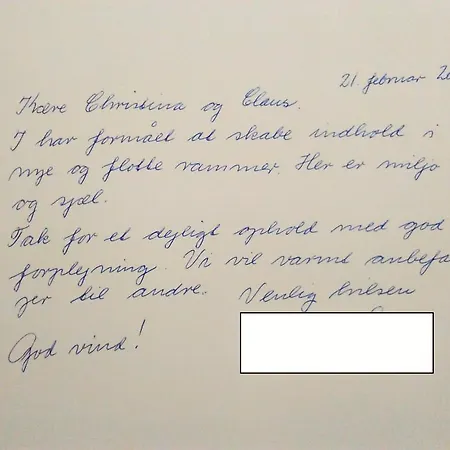 21. februar 20
Kære Christina og Claus.
I har formået at skabe indhold i
nye og flotte rammer. Her er miljø
og sjæl.
Tak for et dejligt ophold med god
forplejning. Vi vil varmt anbefa
jer til andre. Venlig hilsen
God vind!